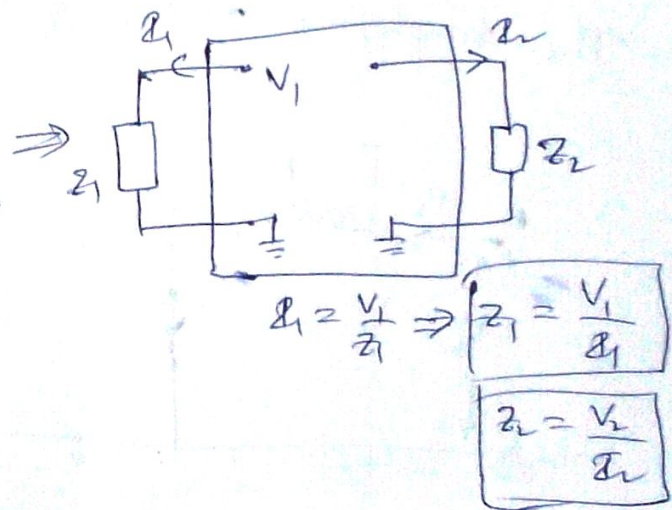 I₁ I₂
V₁
⇒ Z₁ Z₂
I₁ = V₁/Z₁ ⇒ Z₁ = V₁/I₁
Z₂ = V₂/I₂